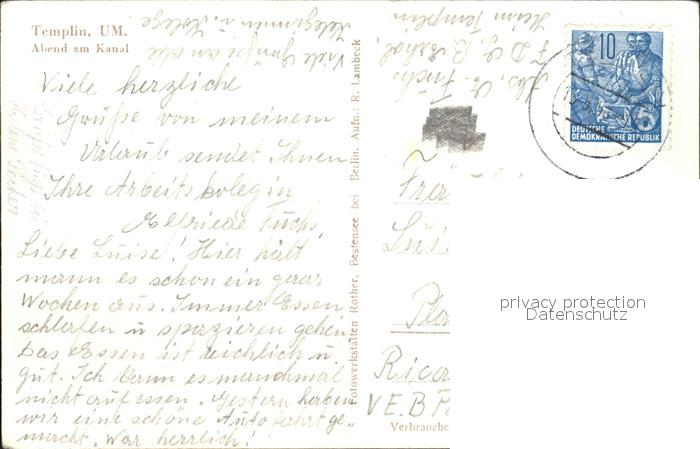 Templin, UM.
Abend am Kanal
Viele Grüße an alle
Kolleginnen u. Kollege
Viele herzliche
Grüße von meinem
Urlaub sendet Ihnen
Ihre Arbeitskolegin
Elfriede Fuchs,
Liebe Luise! Hier hält
mann es schon ein paar
Wochen aus. Immer Essen
schlafen u spazieren gehen
Das Essen ist reichlich u.
gut. Ich kann es manchmal
nicht auf essen. Gestern haben
wir eine schöne Auto fahrt ge„
macht. War herrlich!
Fotowerkstätten Rother, Bestensee bei Berlin. Aufn.: R. Lambeck
Abs. E. Fuchs
F D G B
Heim Templin
10
DEUTSCHE
DEMOKRATISCHE REPUBLIK
Frau
Lui
VEB
Verbrauche
privacy protection
Datenschutz